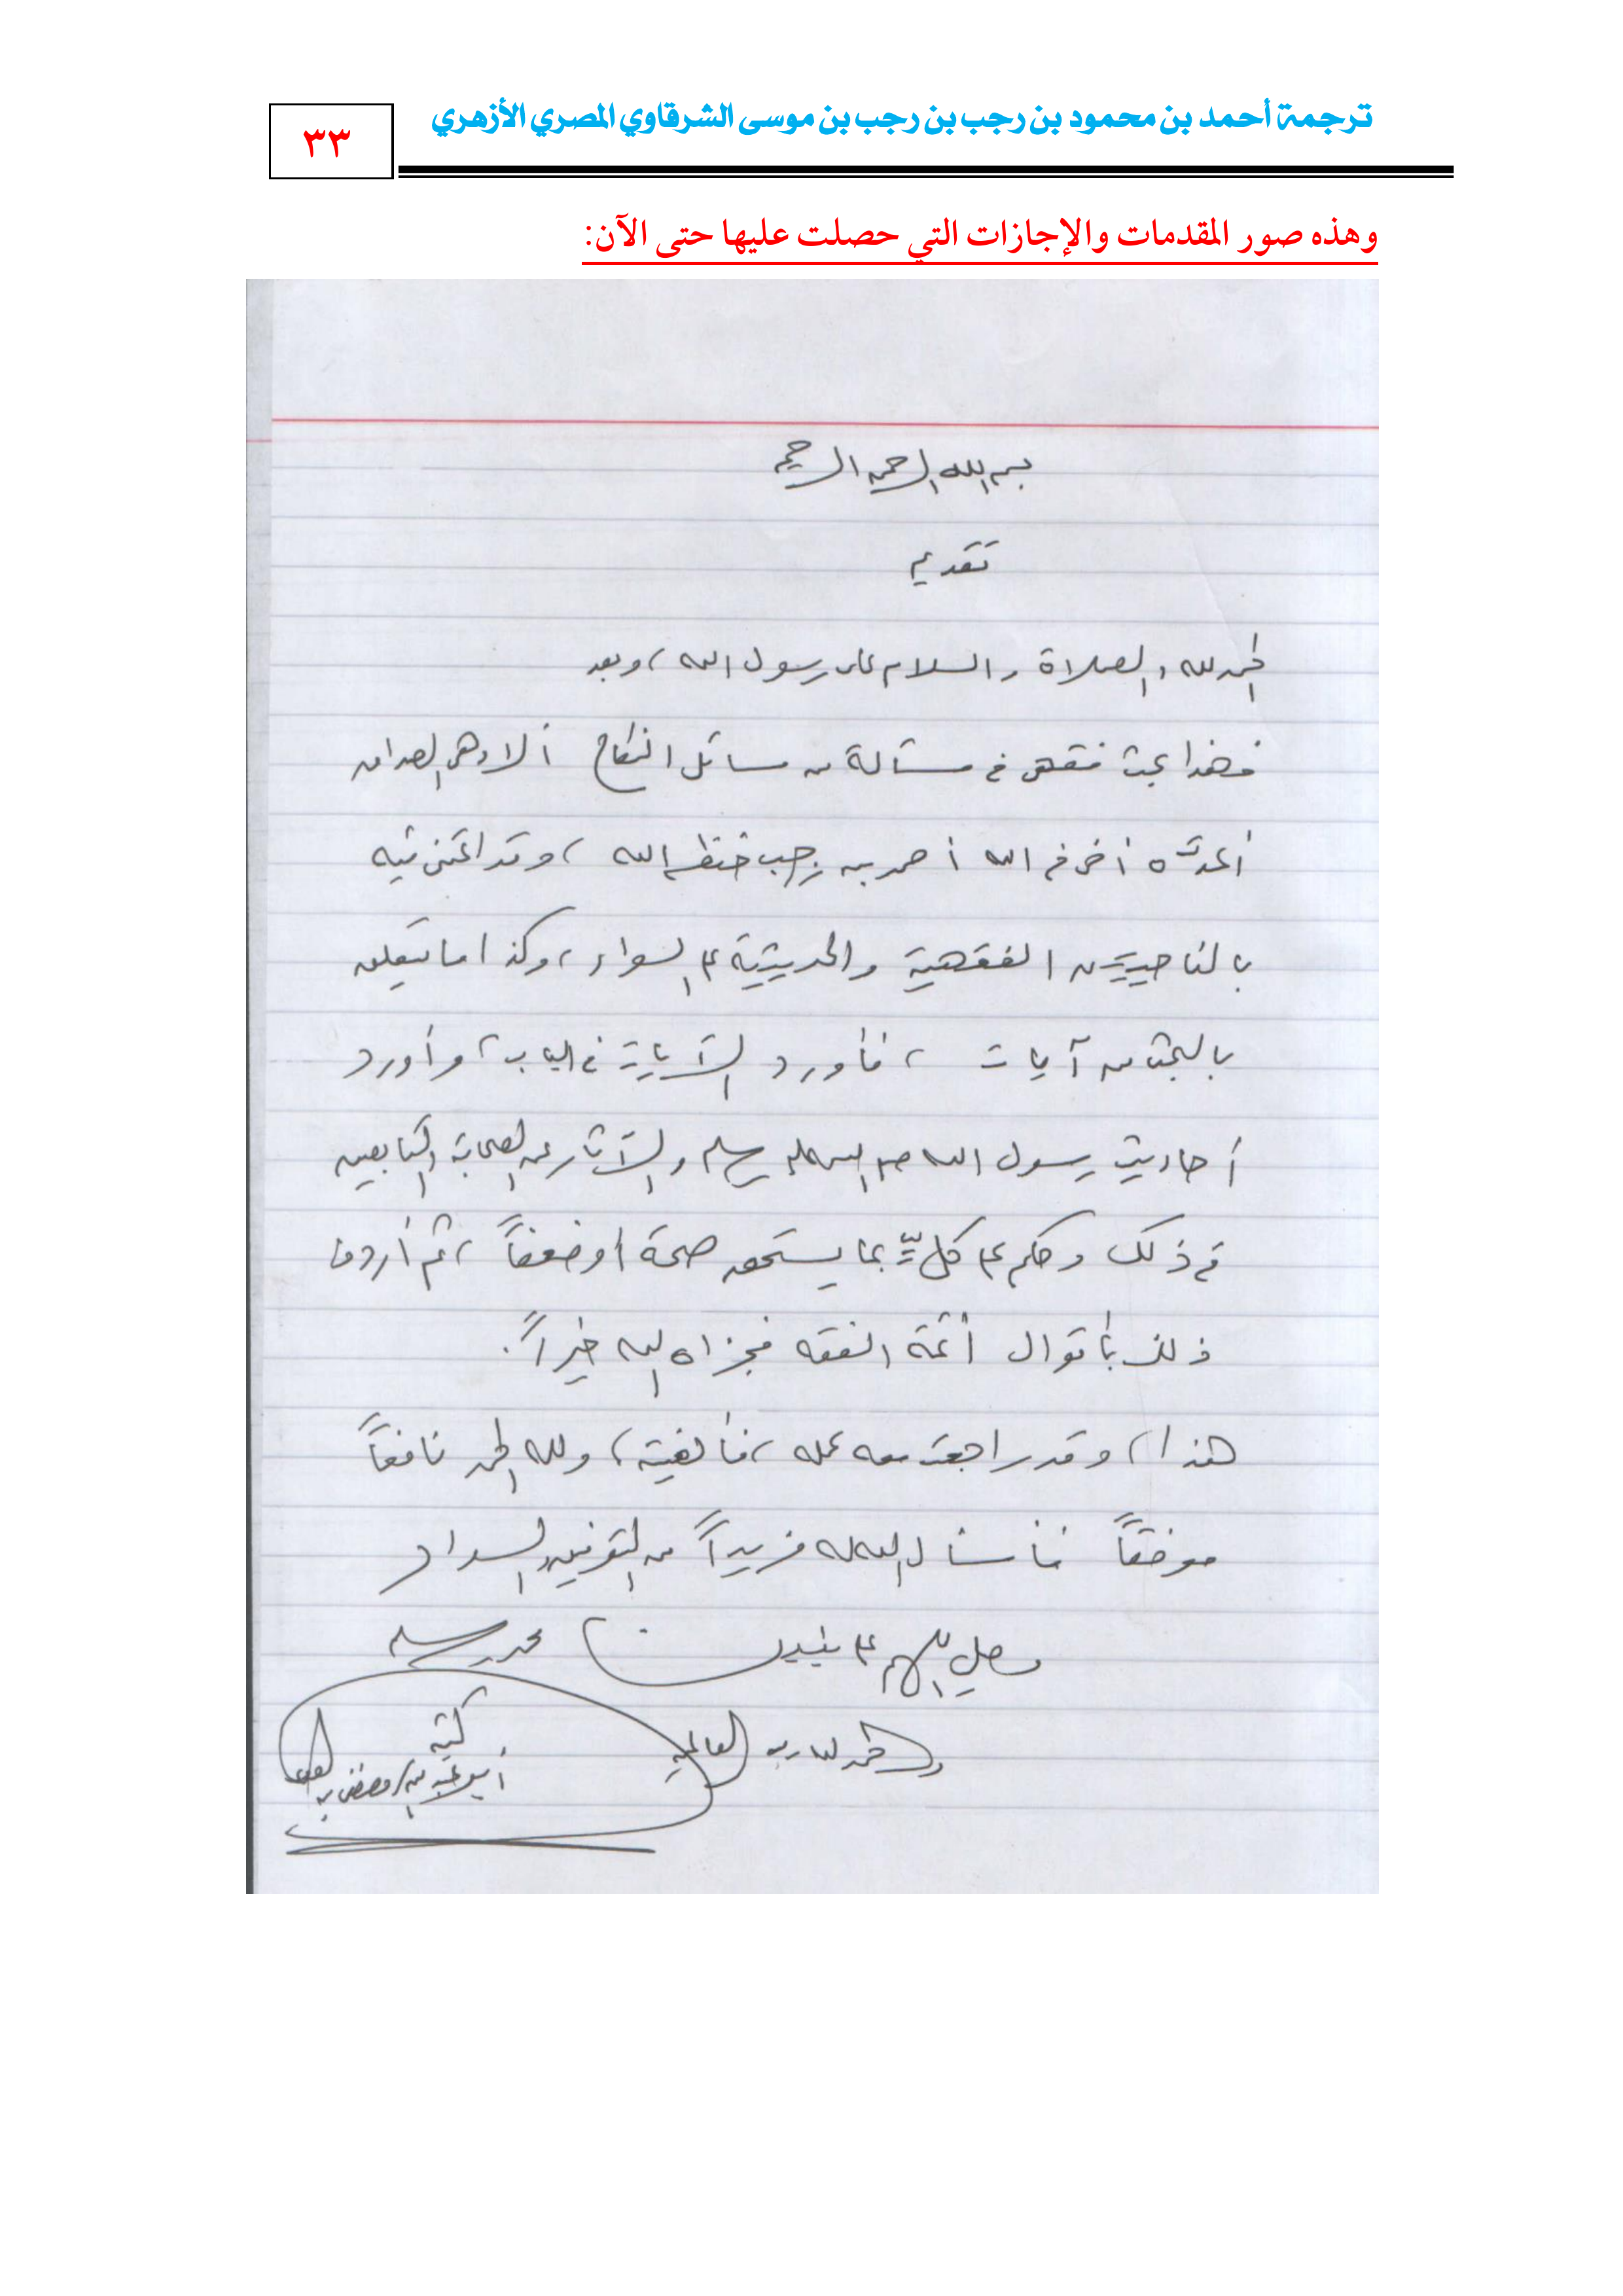 ترجمة أحمد بن محمود بن رجب بن رجب بن موسى الشرقاوي المصري الأزهري
٣٣
وهذه صور المقدمات والإجازات التي حصلت عليها حتى الآن:
بسم الله الرحمن الرحيم
تقديم
الحمد لله والصلاة والسلام على رسول الله، وبعد
فهذا بحث فقهي في مسألة من مسائل النكاح ألا وهي الصداق
أعده أخي في الله أحمد بن رجب حفظه الله، وقد اعتنى فيه
بالناحيتين الفقهية والحديثية على السواء، وكذا ما يتعلق
بالبحث من آيات، فأورد الآيات في الباب، وأورد
أحاديث رسول الله صلى الله عليه وسلم والآثار عن الصحابة والتابعين
في ذلك وحكم على كلٍّ بما يستحق صحة أو ضعفاً، ثم أردف
ذلك بأقوال أئمة الفقه فجزاه الله خيراً.
هذا، وقد راجعت معه عمله، فألفيته، ولله الحمد نافعاً
موفقاً فأسأل الله له مزيداً من التوفيق والسداد
وصل اللهم على نبينا محمد وسلم
والحمد لله رب العالمين
كتبه
أبو عبد الله / مصطفى بن العدوي